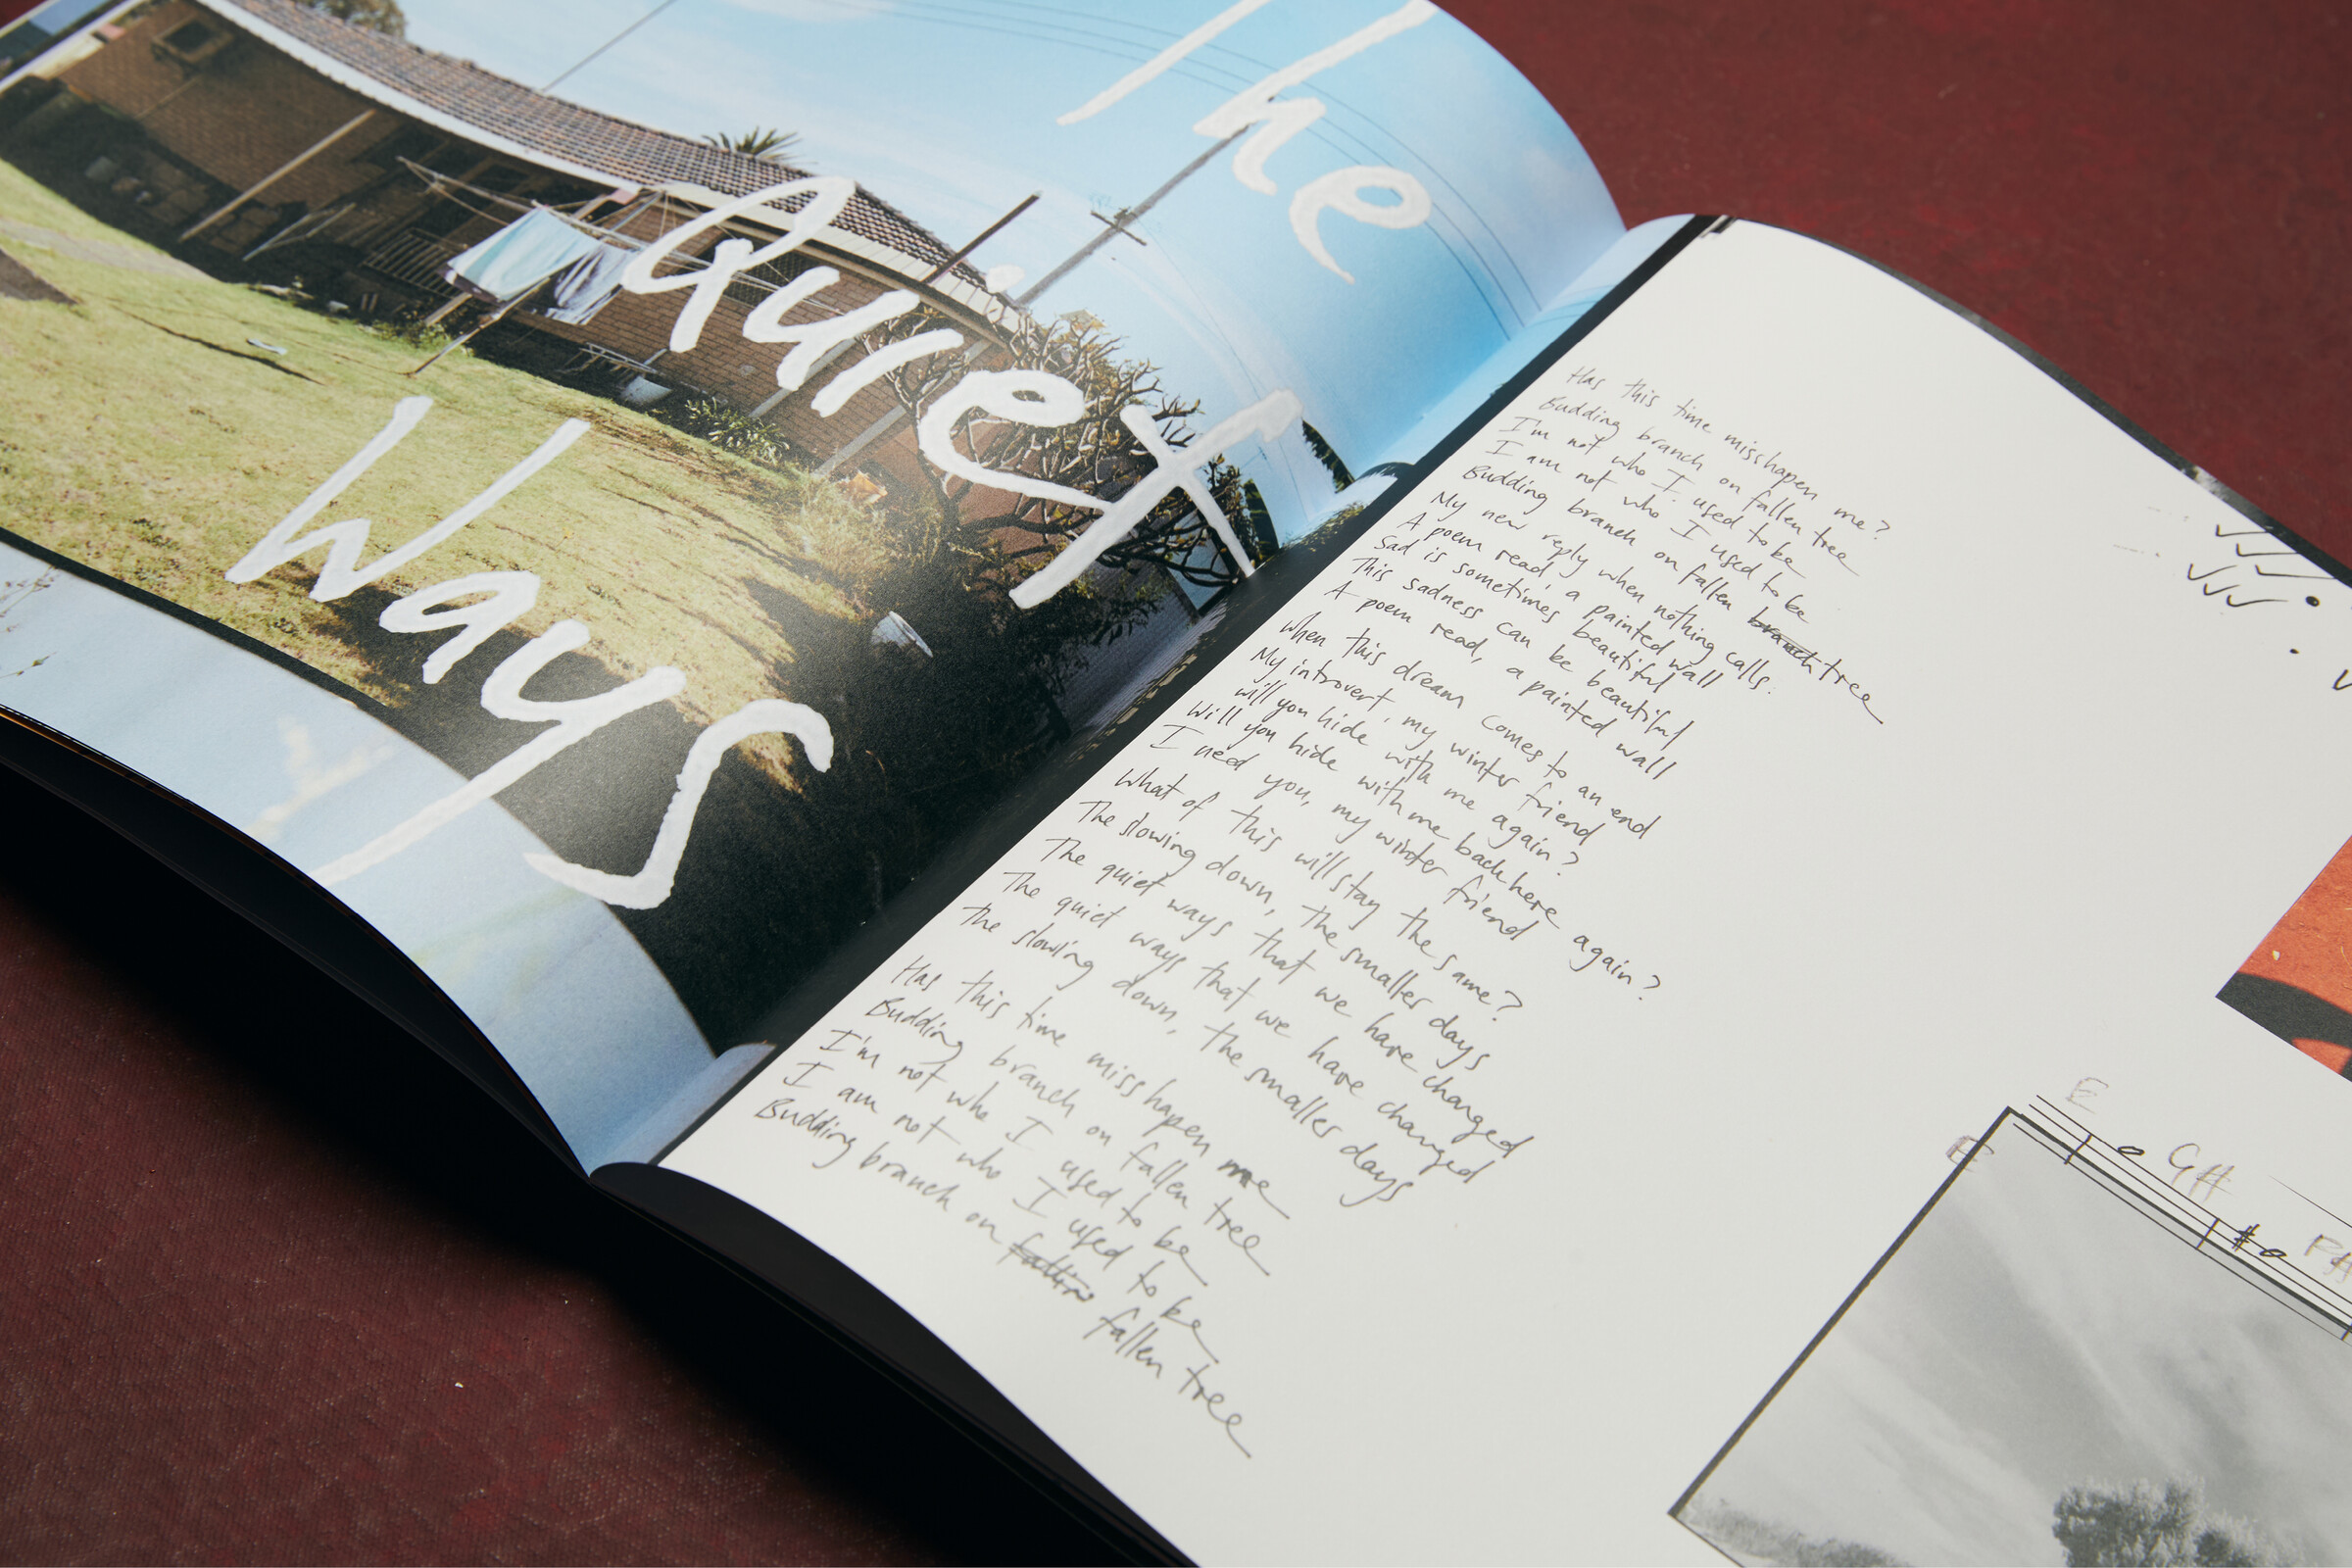 The
Quiet
Ways
Has this time misshapen me?
Budding branch on fallen tree
I'm not who I used to be
I am not who I used to be
Budding branch on fallen branch tree
My new reply when nothing calls.
A poem read, a painted wall
Sad is sometimes beautiful
This sadness can be beautiful
A poem read, a painted wall
When this dream comes to an end
My introvert, my winter friend
Will you hide with me again?
Will you hide with me back here again?
I need you, my winter friend
What of this will stay the same?
The slowing down, the smaller days
The quiet ways that we have changed
The quiet ways that we have changed
The slowing down, the smaller days
Has this time misshapen me
Budding branch on fallen tree
I'm not who I used to be
I am not who I used to be
Budding branch on fallin fallen tree
E
E G# F#